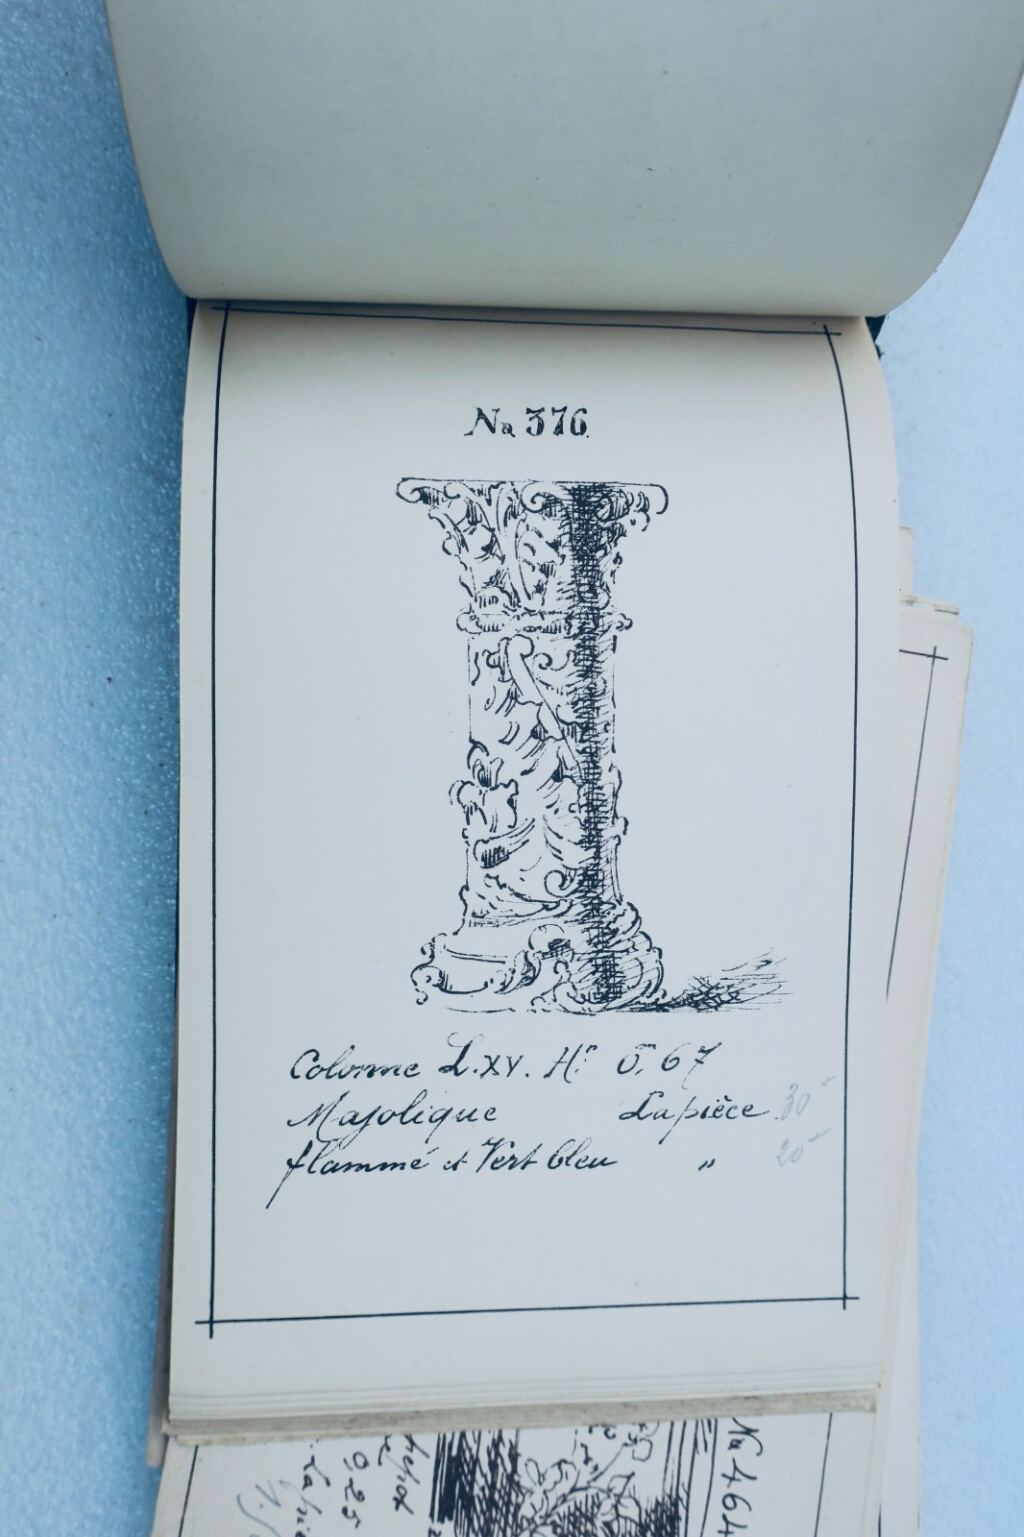 No 376
Colonne L.XV. Hr 0,67
Majolique La pièce 30
flammé et Vert bleu " 20
No 464
0,25